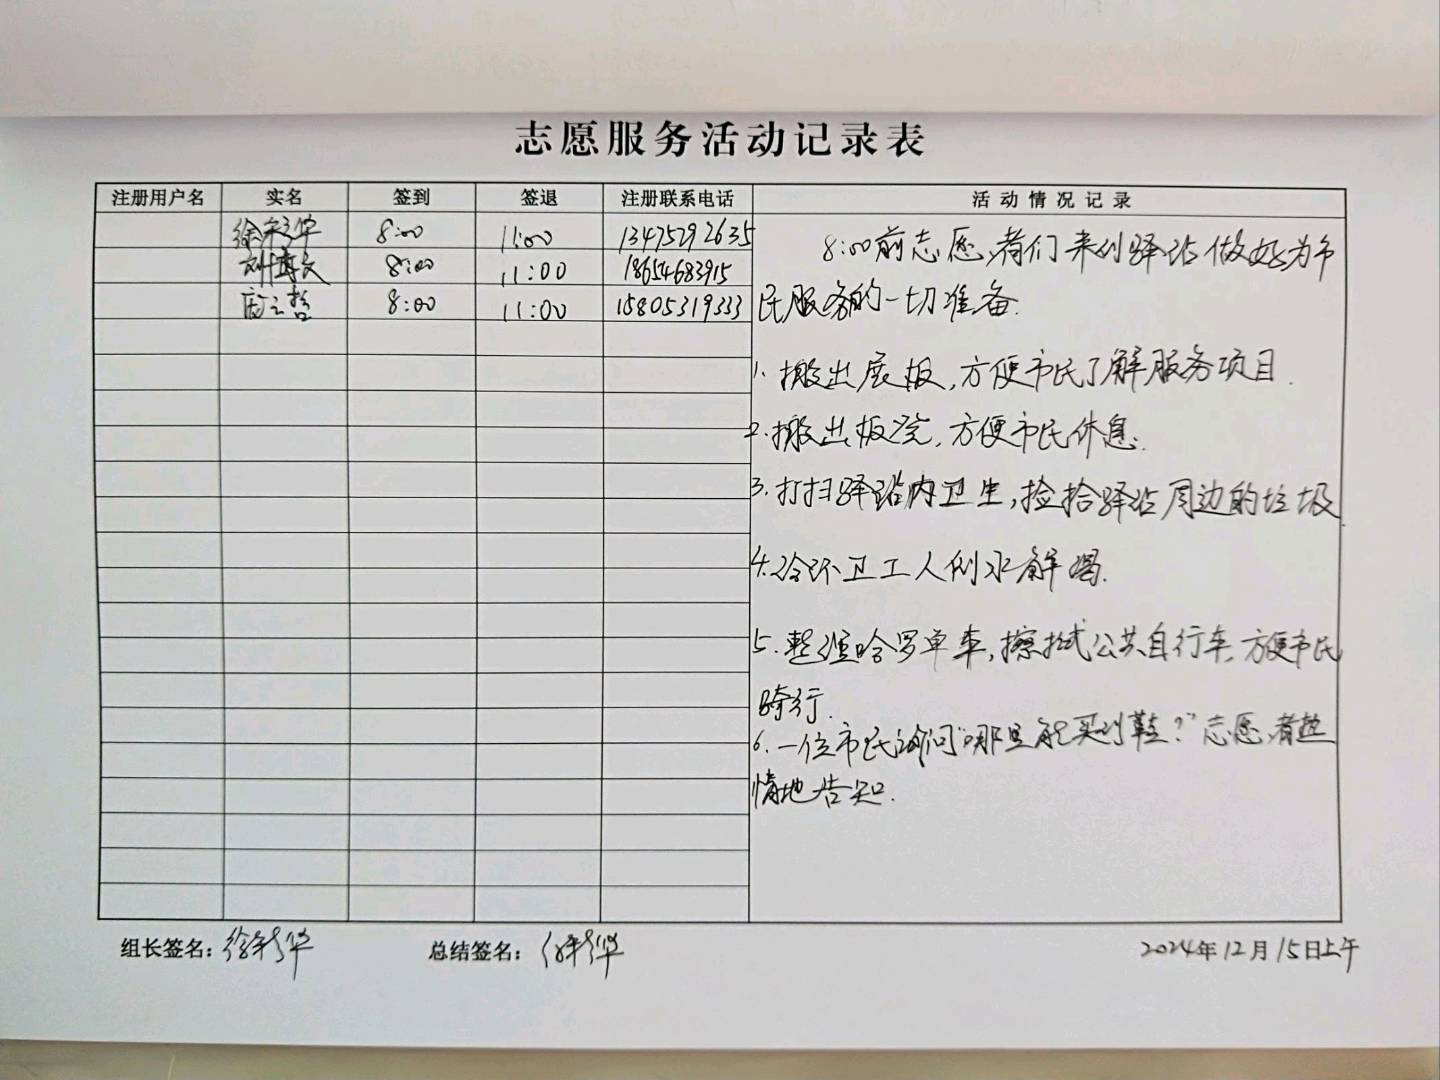 志愿服务活动记录表
注册用户名 实名 签到 签退 注册联系电话 活动情况记录
徐彩华 8:00 11:00 13475292635
8:00 11:00 18654683915
8:00 11:00 15805319333
8:00前志愿者们来到驿站做好为市
民服务的一切准备.
1. 搬出展板,方便市民了解服务项目.
2. 搬出板凳,方便市民休息.
3. 打扫驿站内卫生,捡拾驿站周边的垃圾.
4. 给环卫工人倒水解渴.
5. 整理哈罗单车,擦拭公共自行车,方便市民
骑行.
6. 一位市民询问“哪里能买到鞋?”志愿者热
情地告知.
组长签名:徐彩华 总结签名:徐彩华 2024年12月15日上午